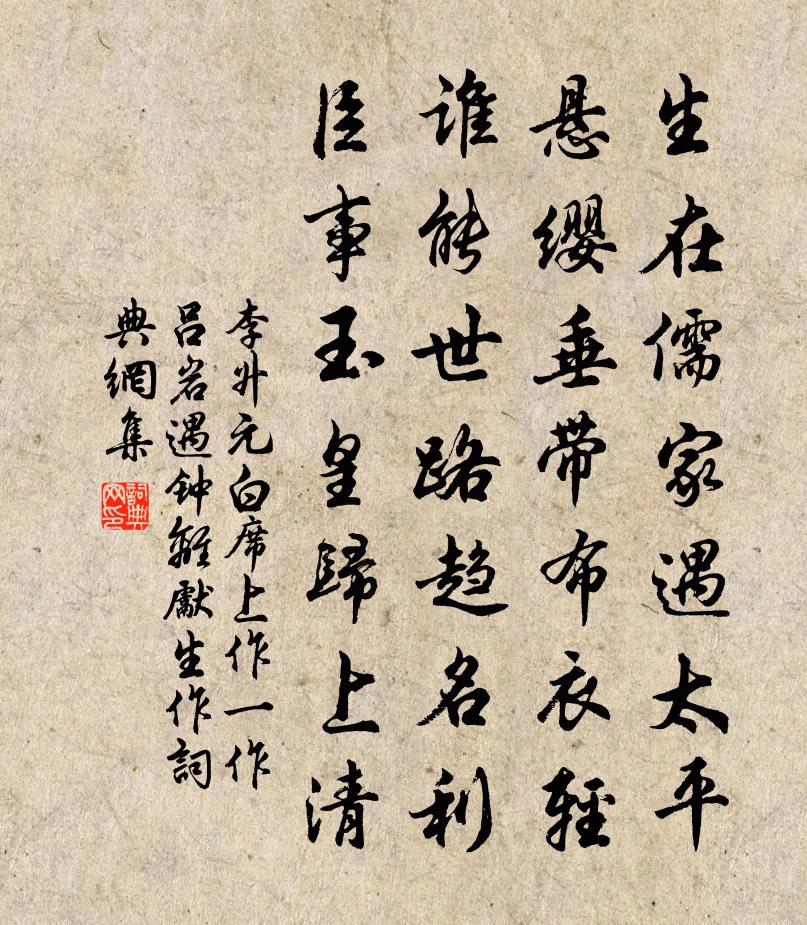 生在儒家遇太平
悬缨垂带布衣輕
谁能世路趋名利
臣事玉皇歸上清
李升元白席上作一作
吕岩遇钟離獻生作詞
典網集
詞典
网印